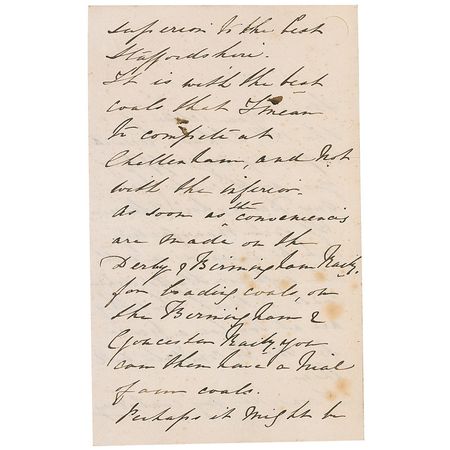 superior to the best
Staffordshire.
It is with the best
coals that I mean
to compete at
Cheltenham, and not
with the inferior.
As soon as the conveniencies
are made on the
Derby & Birmingham Railwy.
for loading coals, on
the Birmingham &
Gloucester Railwy. you
can then have a trial
of our coals.
Perhaps it might be